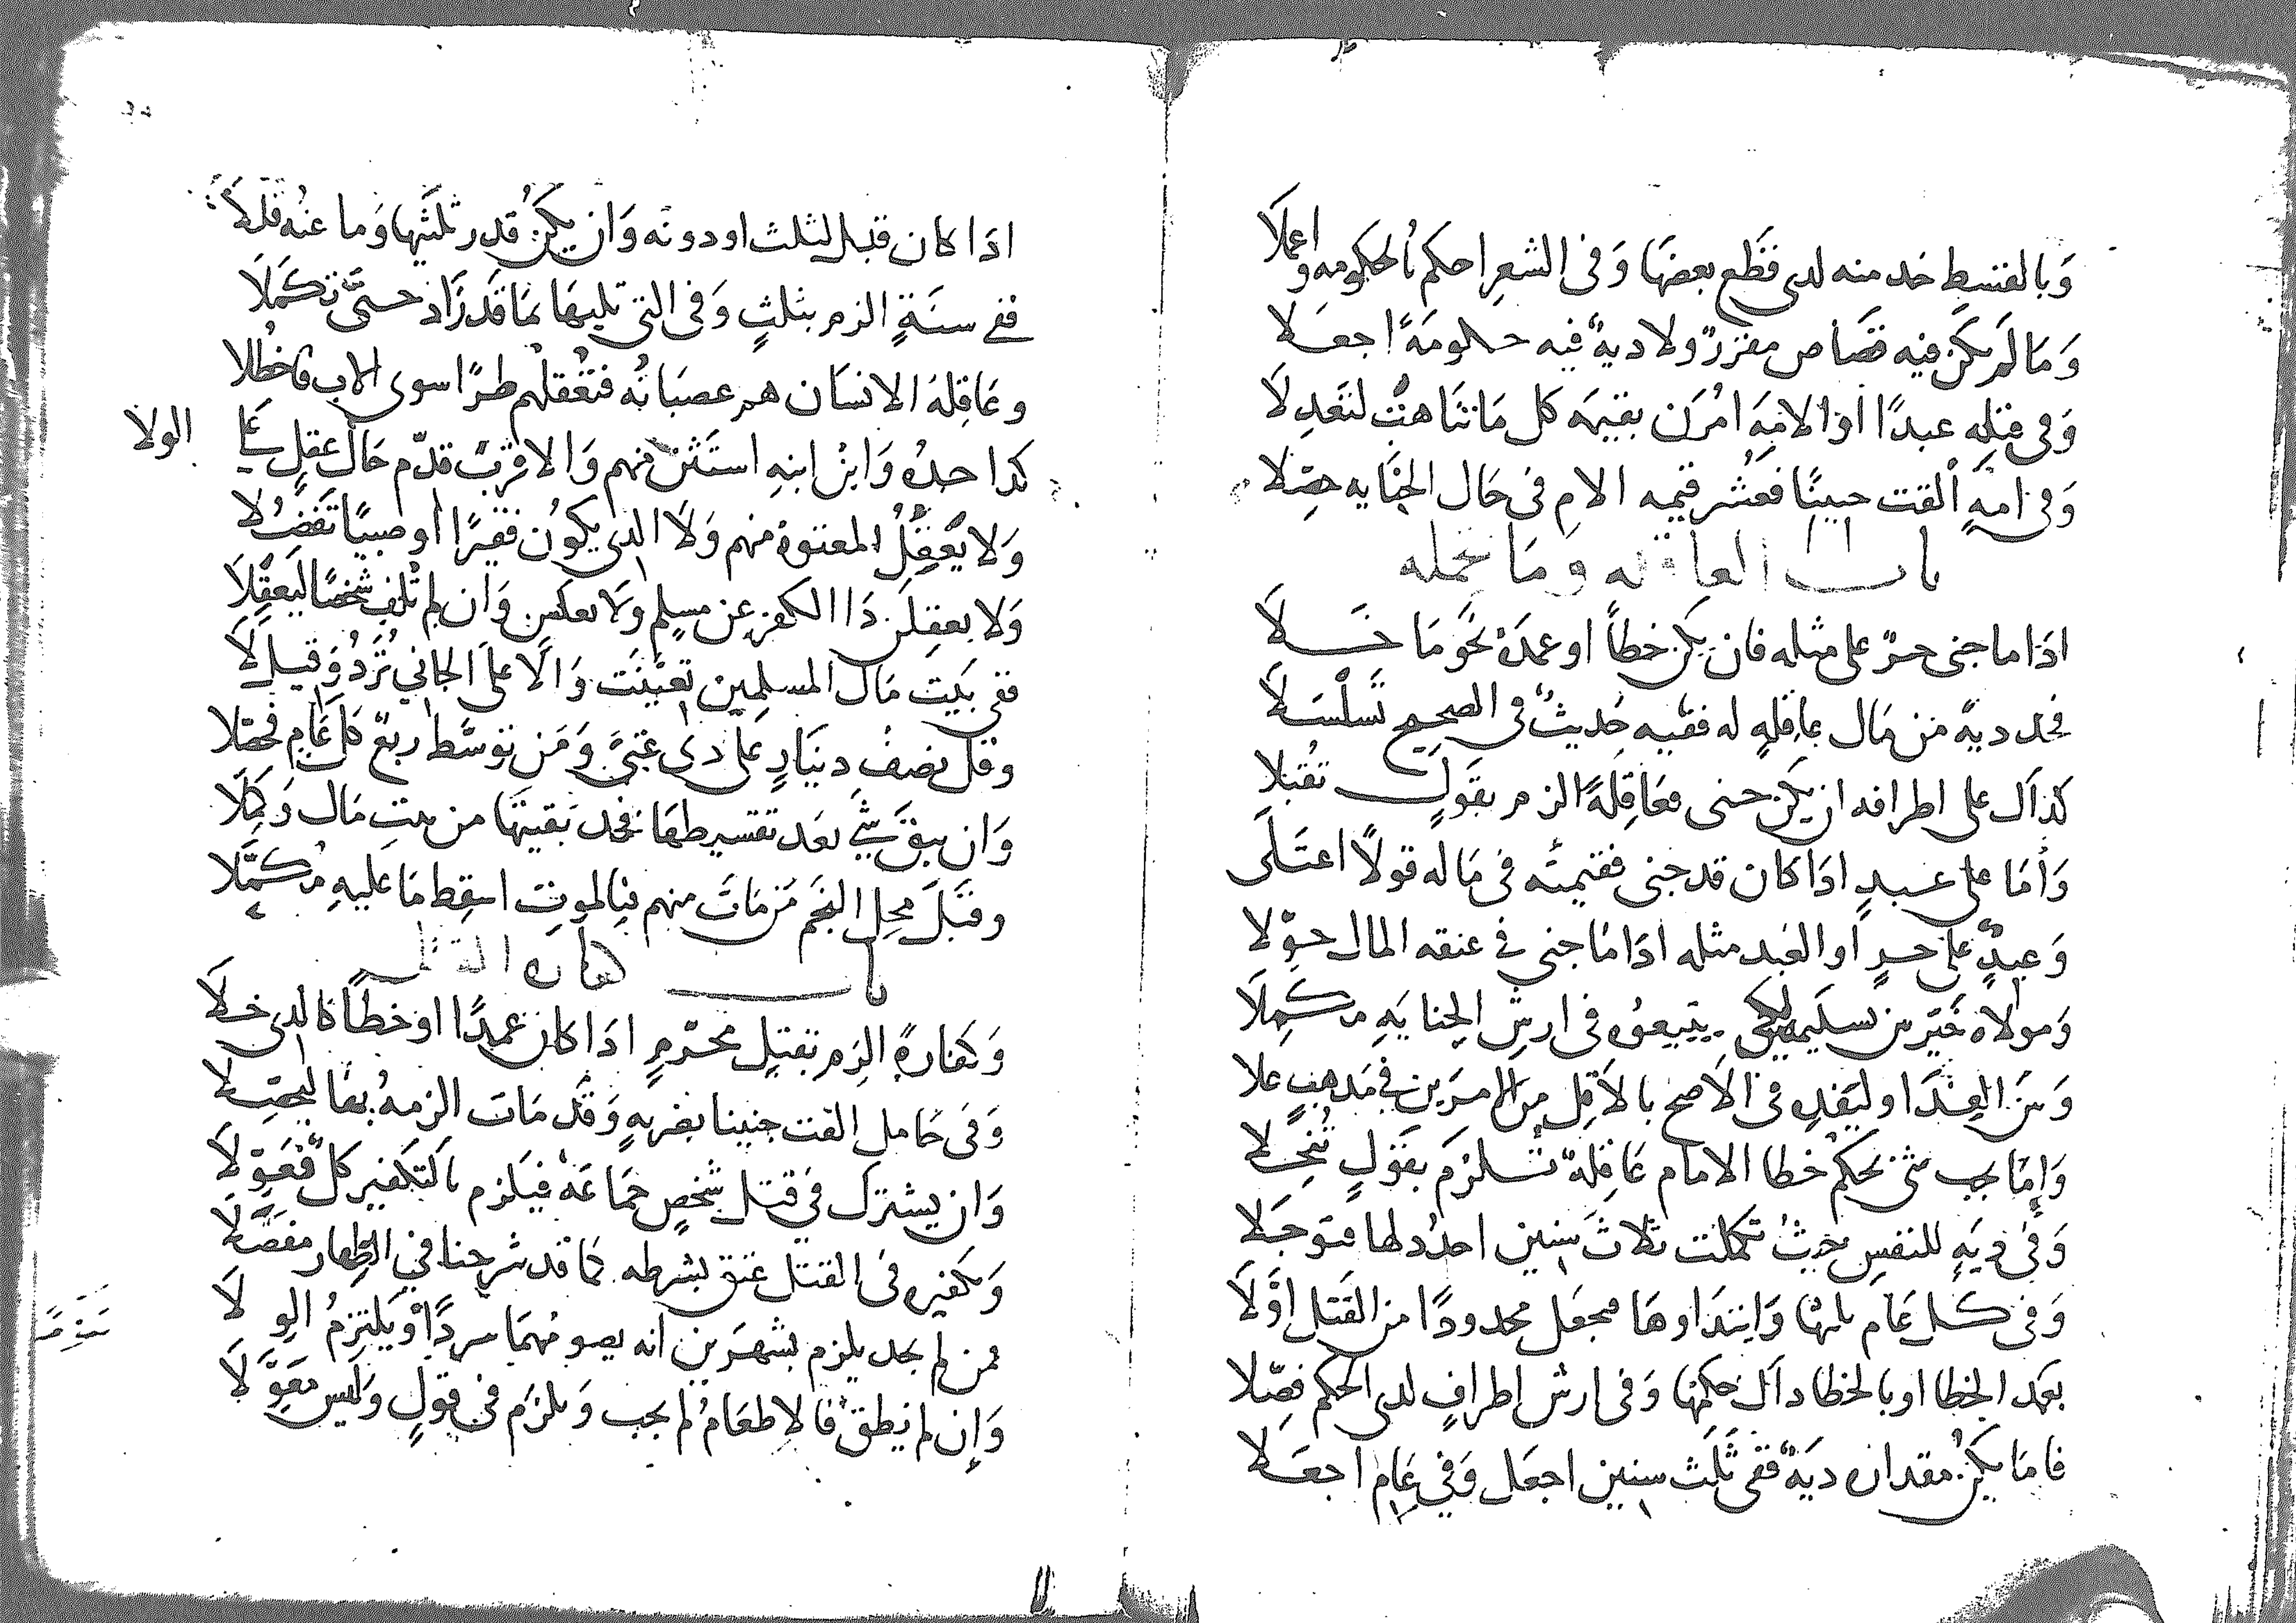 وَبالقسطِ خد منه لدى قطع بعضهَا وَفى الشعرِ احكم بالحكومه واعملَا
وَمَا لَم يكن فيه قصَاص مقرر ولا ديةٌ فيه حكومَةً اجعَلا
وَفى قتلِه عبدًا او الامَهِ امُرَن بقيمَه كل مَا تنَاهتْ لتَعدِلَا
وَفى امهٍ ألقت جنينًا فعُشر قيمه الامِ فى حَال الجنَايه حصّلا
باب العاقله ومَا تحمله
ادَا ما جنى حرّ على مثله فان يكن خطاً او عمدَهُ نحو مَا خَلا
فخد ديةً من مَال عاقلهٍ له ففيه حَديثٌ فى الصحيح تسلْسَلَا
كذاك على اطرافه ان يكن جنى فعَاقِلَةً الزم بقَولٍ تقُبلا
وَأمَا على عبدٍ ادَا كان قد جنى فقيمتُه فى مَاله قولًا اعتَلَى
وَعبدٌ على حرٍ او العَبد مثله ادَا مَا جنى فى عنقه المال حوّلا
وَمولاه خَيّر بين تسليمه لكى يبيعوُه فى ارش الجنايَهِ مكمِلَا
وَبين الفِدَا وليَفدِه فى الاَصح بالاَقل من الامرَين فى مَدهبٍ علا
وَإمّا يجب شئ بحكم خطا الامام عَاقِلةٌ تُلزَم بقَولٍ تُنُخِّلا
وَفى ديَهٍ للنفسِ حيثُ تكملت ثلاثَ سنين احدُد لها فتوجَلا
وَفى كل عَام ثلثها وَابتدَاوهَا فيجعَل محدودًا من القَتل اوّلَا
بعمد الخطا او بالخطا داك حكمها وَفى ارش اطرافٍ لدى الحكم فصّلا
فامَا يكن مقدان ديَهٌ ففى ثَلَث سنين اجعَل وَفى عَام اجعَلا
ادَا كان قبل لثلث او دونه وَان يكن قدر ثلثَيها وَما عنُه قلَلاَ
ففى سنَةٍ الزم بثلثٍ وَفى التى تليهَا بمَا قَد زَاد حتىَّ تكمَلَا
وعَاقِلهُ الانسَان هم عصبَاتُه فتعْقلهم طرًا سوى الاب فاخطُلا
كدا جدُه وَابنُ ابنِهِ استَثن منهم وَالاقربَ قدّم حَال عقلٍ على الولا
وَلا يَعقِلُ المعتوهُ منهم وَلا الدى يكوُن فقيرًا او صبيًا تفضُّلا
وَلا يعقِلَن دَا الكفر عن مسلم ولَا بعكس وَان لم تُلف شخصًا ليَعقِلاَ
ففى بَيت مَال المسلمين تعيّنَت وَالَا على الجاني تُرَدُ وَقيل لَا
وَقل نصفُ دينَارٍ على دى غِنىً وَمَن توسَّط ربعٌ كل عَامٍ فحصّلا
وَان يبق شَئ بعَد تقسيطهَا فخد بقيتهَا من بيتِ مَال وَكمّلا
وقبَلَ محل النجَم مَن مَات منهم فبالموت اسقِط مَا عليهِ مُكمّلا
باب كفارة القتل
وَكفارةً الزم بقتلِ محرّمٍ ادَا كان عمدًا او خطاًءً كالدى خلَا
وَفى حَامل القت جنينا بضربهٍ وَقد مَات الزمهُ بهَا ليحصّلا
وَان يشترك فى قتل شخصٍ جمَاعَهٌ فيَلزم بالتكفير كلٌّ فعَوّلَا
وَتكفيره فى القتل عتق بشرطه كمَا قد شرحنا فى الظِهار مفصَّلَا
فمن لم يجد يلزم بشهرَين انه يصومُهمَا سردًا وَيلتزمُ الوِلَا
وَإن لم يُطق فالاطعَامُ لم يجب وَيلزَم فى قولٍ وَليس معَوَّلَا